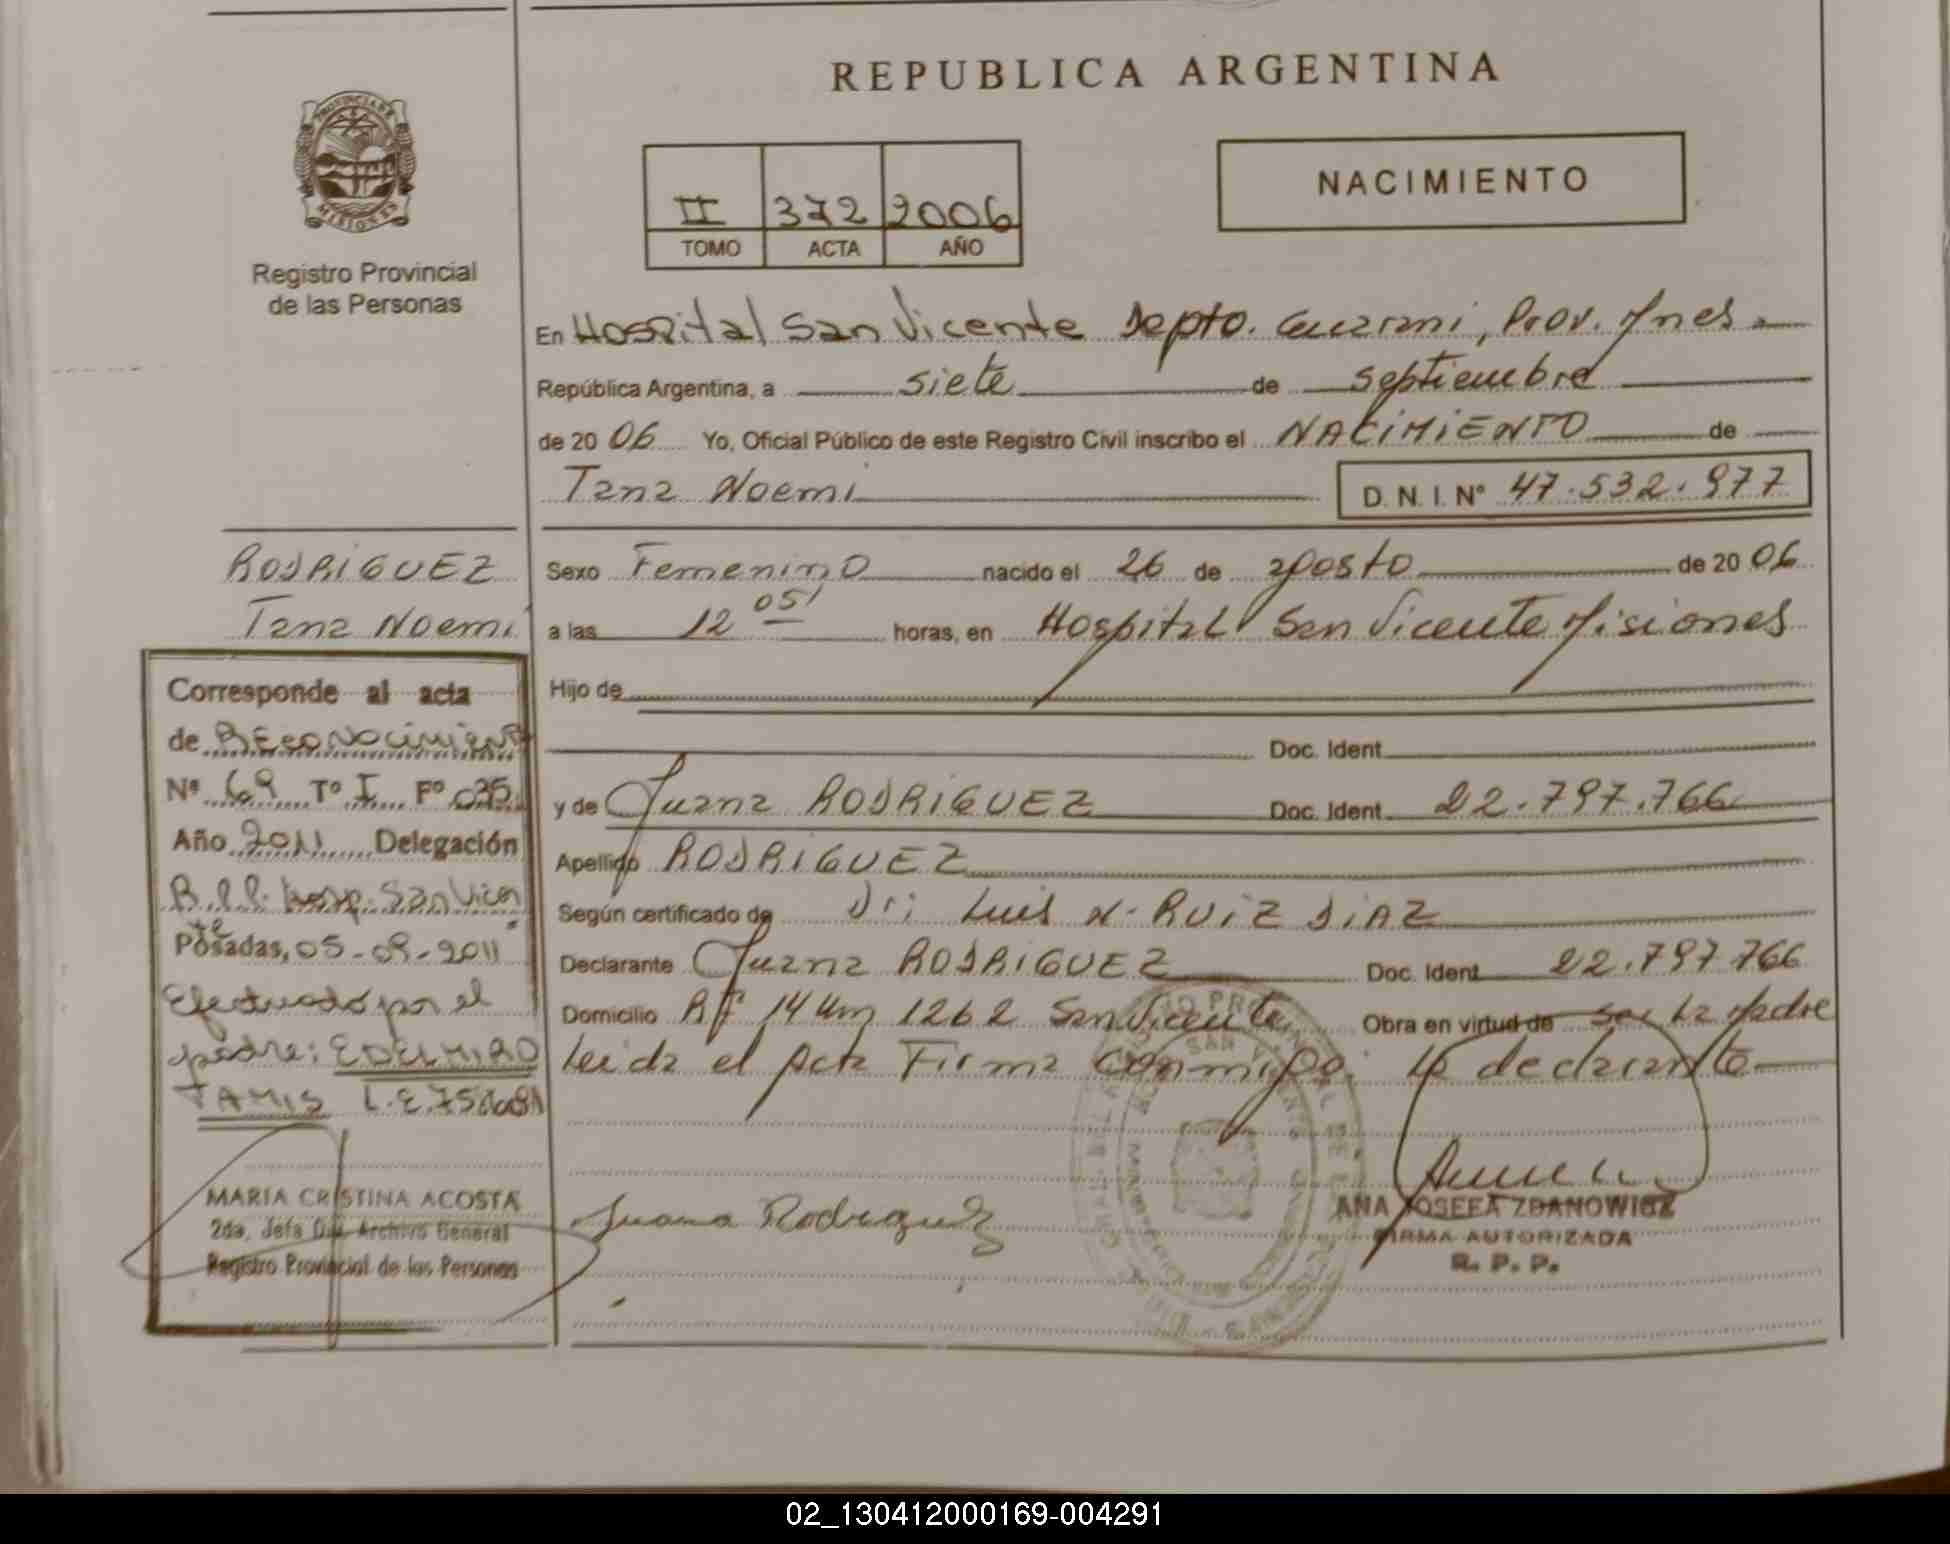 REPUBLICA ARGENTINA
PROVINCIA DE
MISIONES
Registro Provincial
de las Personas
II 372 2006
TOMO ACTA AÑO
NACIMIENTO
En Hospital San Vicente Depto. Guarani, Prov. Mnes
República Argentina, a siete de septiembre
de 20 06 Yo, Oficial Público de este Registro Civil inscribo el NACIMIENTO de
Tana Noemi D. N. I. Nº 47.532.977
Sexo Femenino nacido el 26 de agosto de 20 06
a las 12 05' horas, en Hospital San Vicente Misiones
Hijo de
Doc. Ident
y de Juana RODRIGUEZ Doc. Ident 22.797.766
Apellido RODRIGUEZ
Según certificado de Dr: Luis N. RUIZ DIAZ
Declarante Juana RODRIGUEZ Doc. Ident 22.797.766
Domicilio 14 Km 1262 San Vicente Obra en virtud de ser la Madre
Leida el Acta Firma conmigo la declarante
Juana Rodriguez
ANA JOSEFA ZBANOWICZ
FIRMA AUTORIZADA
R. P. P.
RODRIGUEZ
Tana Noemi
Corresponde al acta
de RECONOCIMIENTO
Nº 69 Tº I Fº 035
Año 2011 Delegación
R.P.P. Hosp. San Vicen
te
Posadas, 05-09-2011
Efectuado por el
padre: EDELMIRO
TAMIS L.E.
MARIA CRISTINA ACOSTA
2da. Jefa Archivo General
Registro Provincial de las Personas
02_130412000169-004291